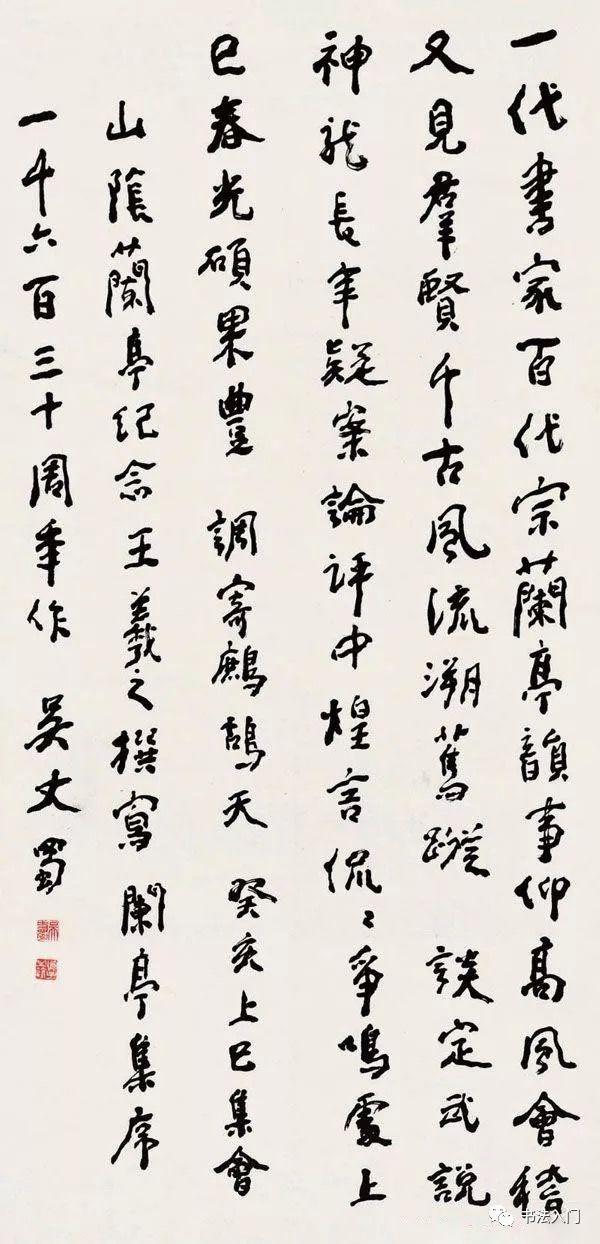 一代書家百代宗蘭亭韻事仰高風會稽
又見羣賢千古風流溯舊蹤 談定武說
神龍長年疑案論評中煌言侃〻爭鳴處上
巳春光碩果豐 調寄鷓鴣天 癸亥上巳集會
山陰蘭亭紀念王羲之撰寫蘭亭集序
一千六百三十周年作 吳丈蜀
书法入门